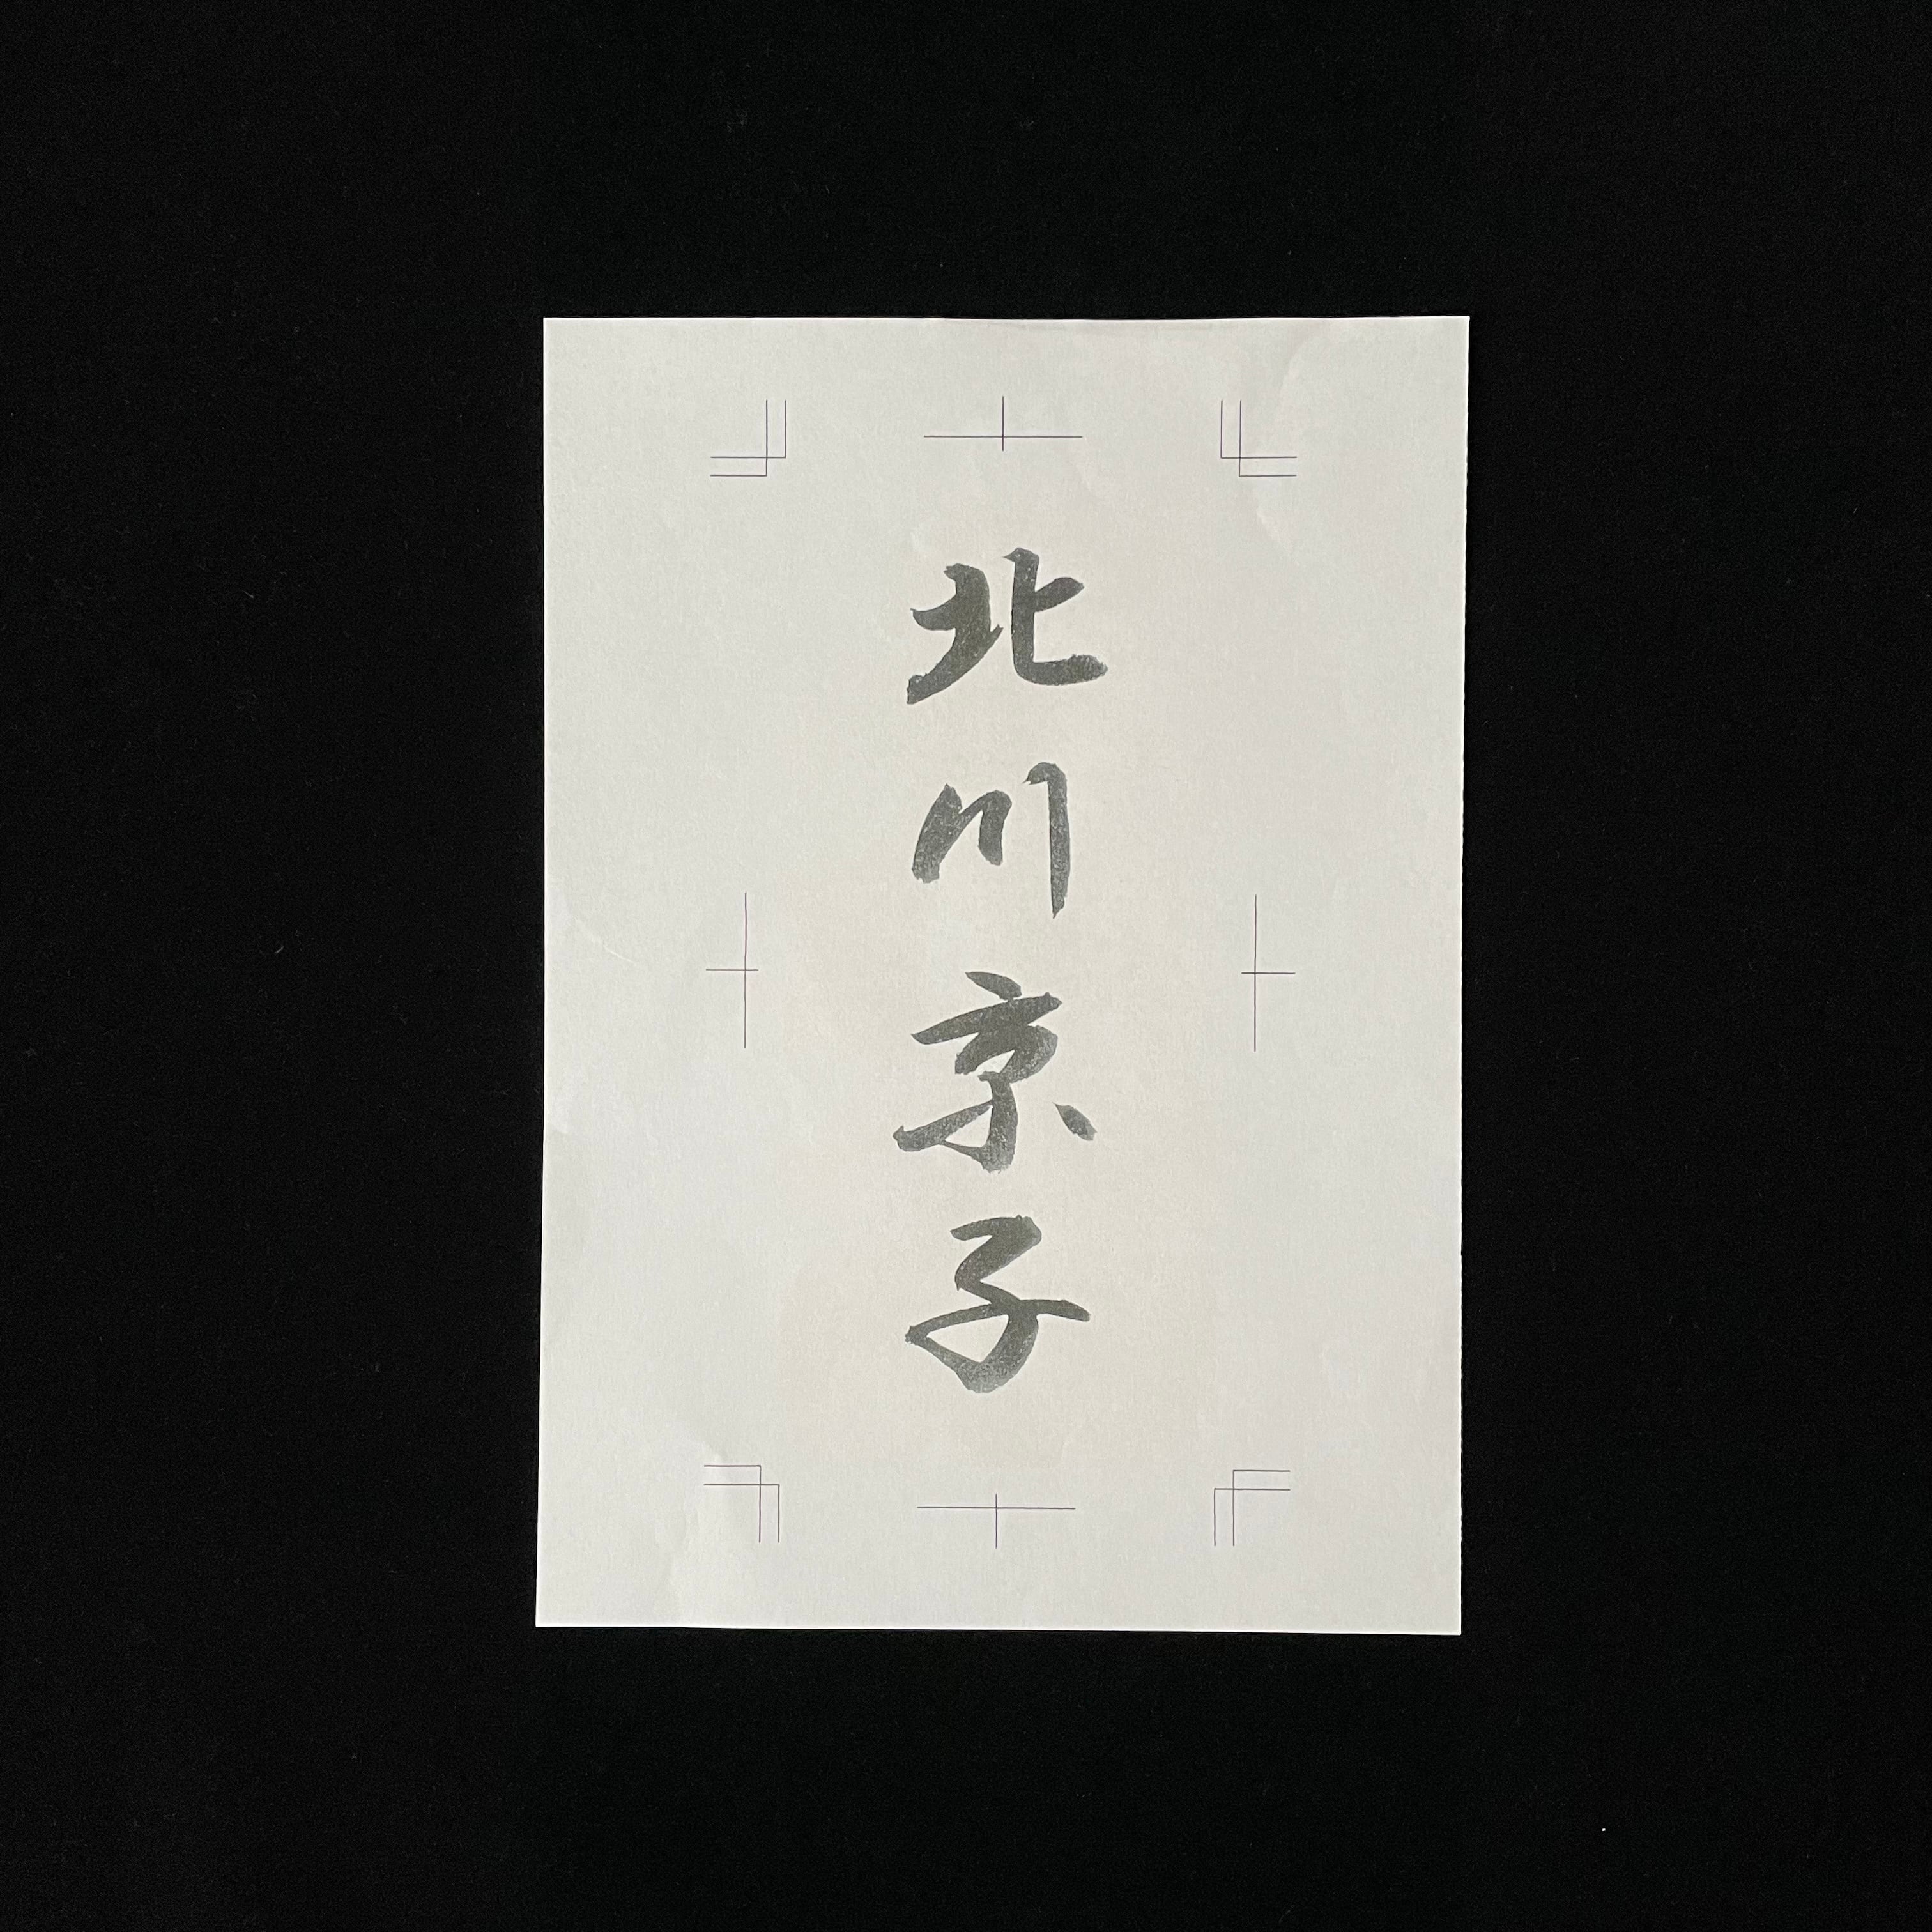 北川京子